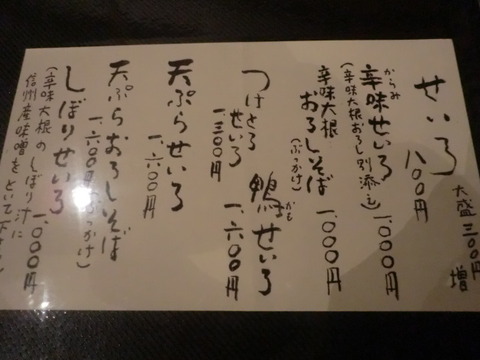 せいろ
八〇〇円
大盛三〇〇円増
からみ
辛味せいろ 一、〇〇〇円
(辛味大根おろし別添え)
辛味大根
おろしそば 一、〇〇〇円
(ぶっかけ)
つけとろ
せいろ
一、三〇〇円
鴨せいろ
かも
一、六〇〇円
天ぷらせいろ
一、六〇〇円
天ぷらおろしそば
一、六〇〇円(ぶっかけ)
しぼりせいろ 一、〇〇〇円
(辛味大根のしぼり汁に
信州産味噌をといて下さい